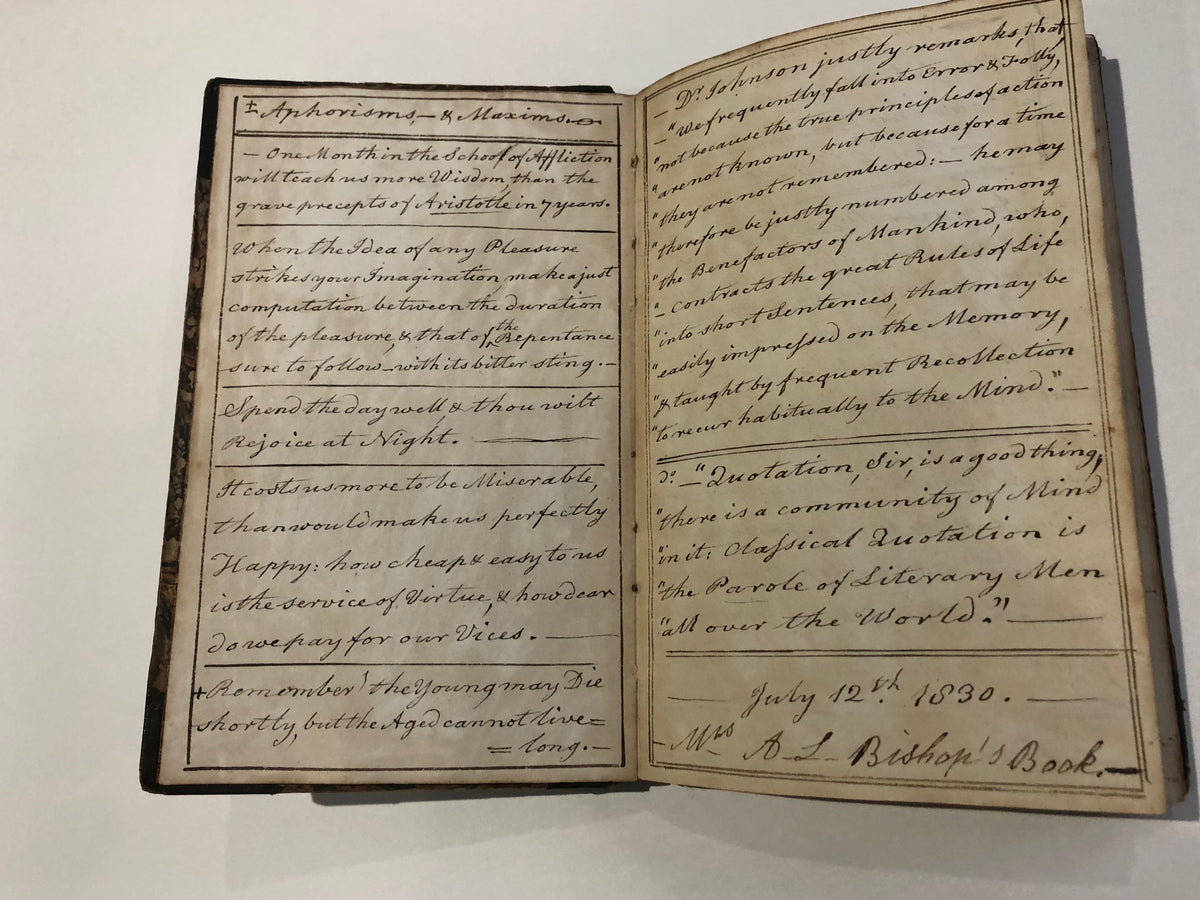 ± Aphorisms, — & Maxims.
— One Month in the School of Affliction
will teach us more Wisdom, than the
grave precepts of Aristotle in 7 years.
When the Idea of any Pleasure
strikes your Imagination, make a just
computation between the duration
of the pleasure, & that of the Repentance
sure to follow – with its bitter sting. –
Spend the day well, & thou wilt
Rejoice at Night. —
It costs us more to be Miserable,
than would make us perfectly
Happy: how cheap & easy to us
is the service of Virtue, & how dear
do we pay for our Vices. —
+ Remember! the Young may Die
shortly, but the Aged cannot live =
= long. –
— Dr. Johnson justly remarks, that
— "We frequently fall into Error & Folly,
"not because the true principles of action
"are not known, but because for a time
"they are not remembered: — he may
"therefore be justly numbered among
"the Benefactors of Mankind, who,
" contracts the great Rules of Life
"into short Sentences, that may be
"easily impressed on the Memory,
"& taught by frequent Recollection
"to recur habitually to the Mind." —
do. — "Quotation, Sir, is a good thing,
"there is a community of Mind
"in it: Classical Quotation is
"the Parole of Literary Men
"all over the World." —
— July 12th. 1830. —
— Mrs A – L – Bishop's Book. —